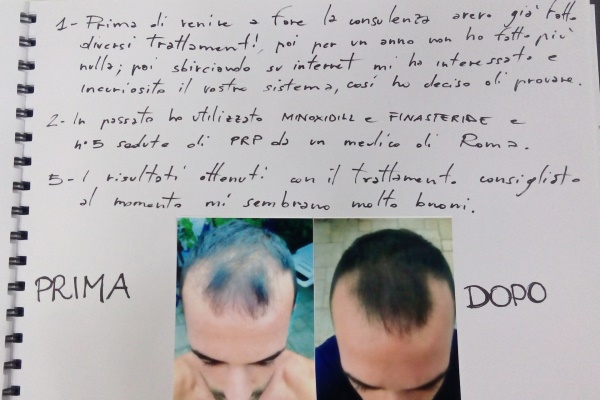 1- Prima di venire a fare la consulenza avevo già fatto
diversi trattamenti, poi per un anno non ho fatto più
nulla; poi sbirciando su internet mi ha interessato e
incuriosito il vostro sistema, così ho deciso di provare.
2- In passato ho utilizzato MINOXIDILL e FINASTERIDE e
n°5 sedute di PRP da un medico di Roma.
5- I risultati ottenuti con il trattamento consigliato
al momento mi sembrano molto buoni.
PRIMA
DOPO